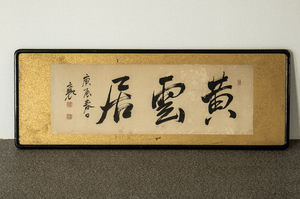 黄雲居
庚辰春日